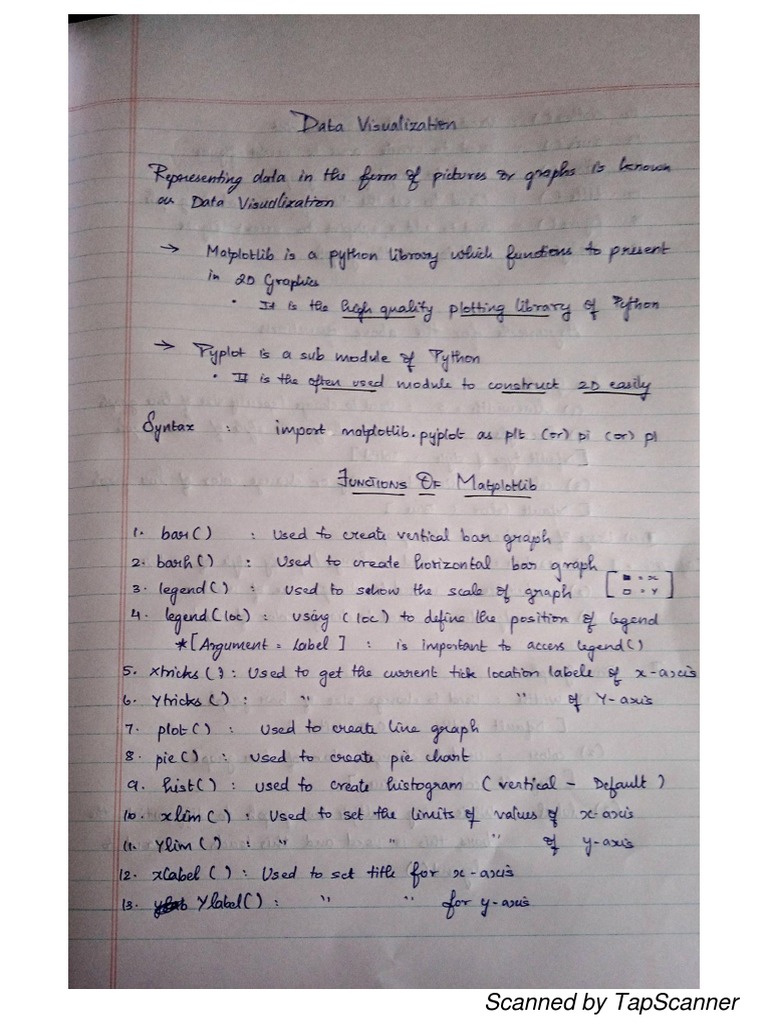 Data Visualization
Representing data in the form of pictures or graphs is known
as Data Visualization
→ Matplotlib is a python library which functions to present
in 2D Graphics
• It is the high quality plotting library of Python
→ Pyplot is a sub module of Python
• It is the often used module to construct 2D easily
Syntax : import matplotlib.pyplot as plt (or) pi (or) pl
FUNCTIONS OF Matplotlib
1. bar() : Used to create vertical bar graph
2. barh() : Used to create horizontal bar graph
3. legend() : used to show the scale of graph [ ■ = x
□ = Y ]
4. legend(loc) : using (loc) to define the position of legend
*[Argument = Label] : is important to access legend()
5. Xtricks() : Used to get the current tick location labels of x-axis
6. Ytricks() : " " of Y-axis
7. plot() : Used to create line graph
8. pie() : used to create pie chart
9. hist() : used to create histogram (vertical - Default)
10. xlim() : Used to set the limits of values of x-axis
11. Ylim() : " " " of y-axis
12. xlabel() : Used to set title for x-axis
13. Ylabel() : " " for y-axis
Scanned by TapScanner